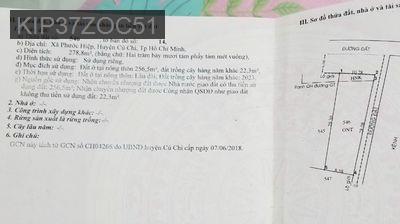 KIP37ZOC51
546 , tờ bản đồ số: 14.
b) Địa chỉ: Xã Phước Hiệp, Huyện Củ Chi, Tp Hồ Chí Minh.
c) Diện tích: 278.8m², (bằng chữ: Hai trăm bảy mươi tám phẩy tám mét vuông),
d) Hình thức sử dụng: Sử dụng riêng.
đ) Mục đích sử dụng: Đất ở tại nông thôn 256,5m², đất trồng cây hàng năm khác 22,3m².
e) Thời hạn sử dụng: Đất ở tại nông thôn: Lâu dài; Đất trồng cây hàng năm khác: 2023.
f) Nguồn gốc sử dụng: Nhận chuyển nhượng đất được Nhà nước giao đất có thu tiền sử
dụng đất: 256,5m²; Nhận chuyển nhượng đất được Công nhận QSDĐ như giao đất
không thu tiền sử dụng đất: 22,3m².
2. Nhà ở: -/-
3. Công trình xây dựng khác: -/-
4. Rừng sản xuất là rừng trồng: -/-
5. Cây lâu năm: -/-
6. Ghi chú:
GCN này tách từ GCN số CH01265 do UBND huyện Củ Chi cấp ngày 07/06/2018.
III. Sơ đồ thửa đất, nhà ở và tài sả
ĐƯỜNG ĐẤT
Lộ giới
HNK
545
546
ONT
547
Lộ giới
KÊNH